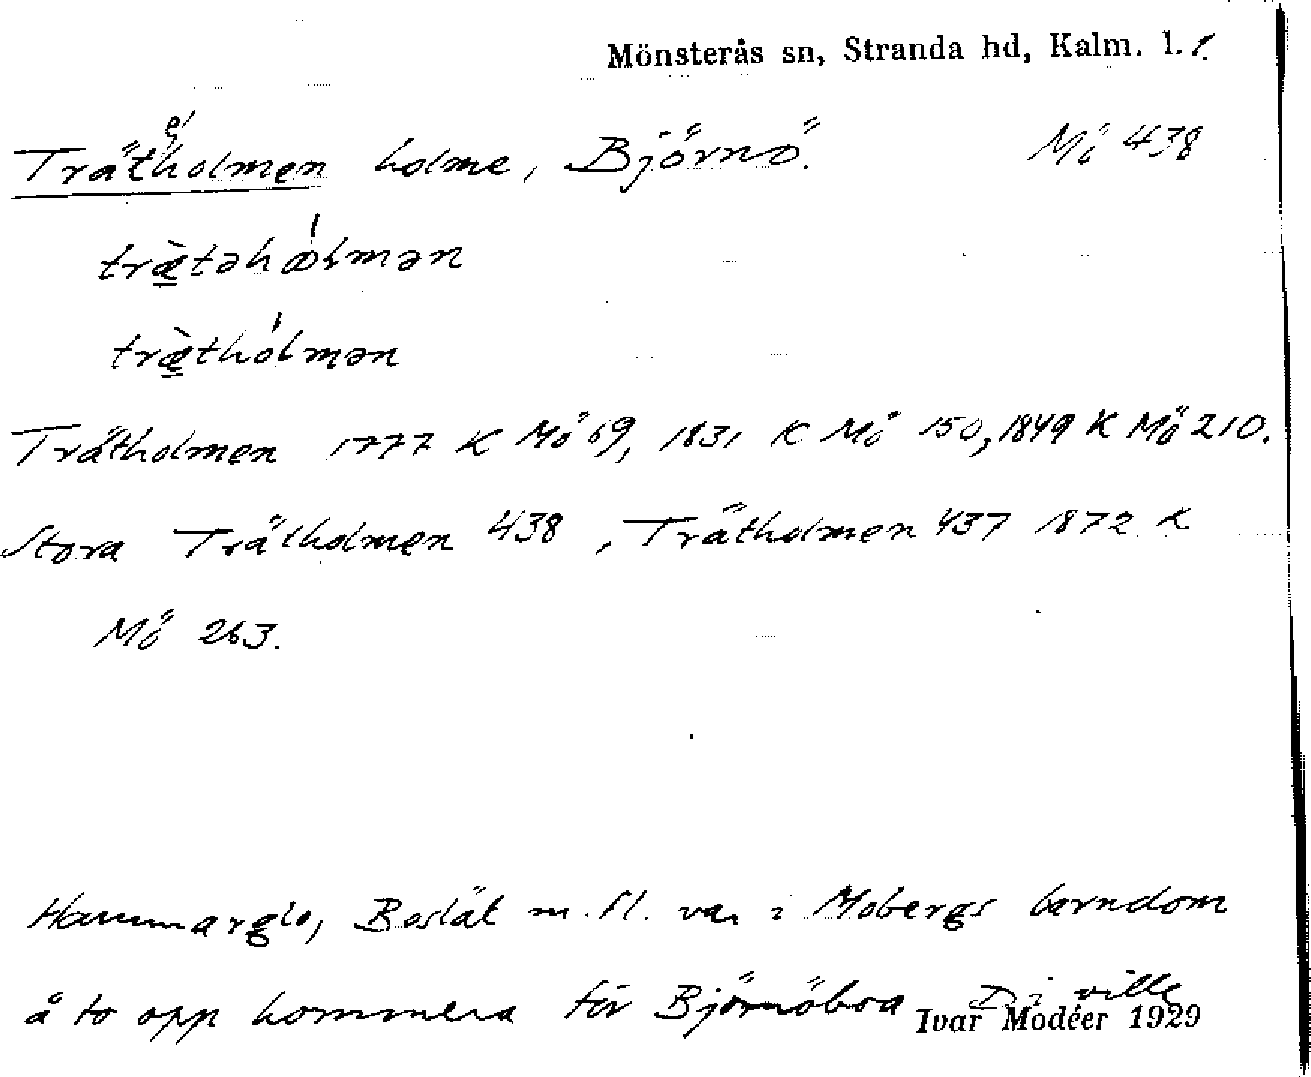 Mönsterås sn, Stranda hd, Kalm. l. 1.
Trätеholmen holme, Björnö. Mö 438
træ̀təhòlmən
træ̀thòlmən
Trätholmen 1777 K Mö 69, 1831 K Mö 150, 1849 K Mö 210.
Stora Trätholmen 438, Trätholmen 437 1872 K
Mö 263.
m. fl. var i Mobergs barndom
å to opp kommera för Björnöboa Di ville
Ivar Modéer 1929